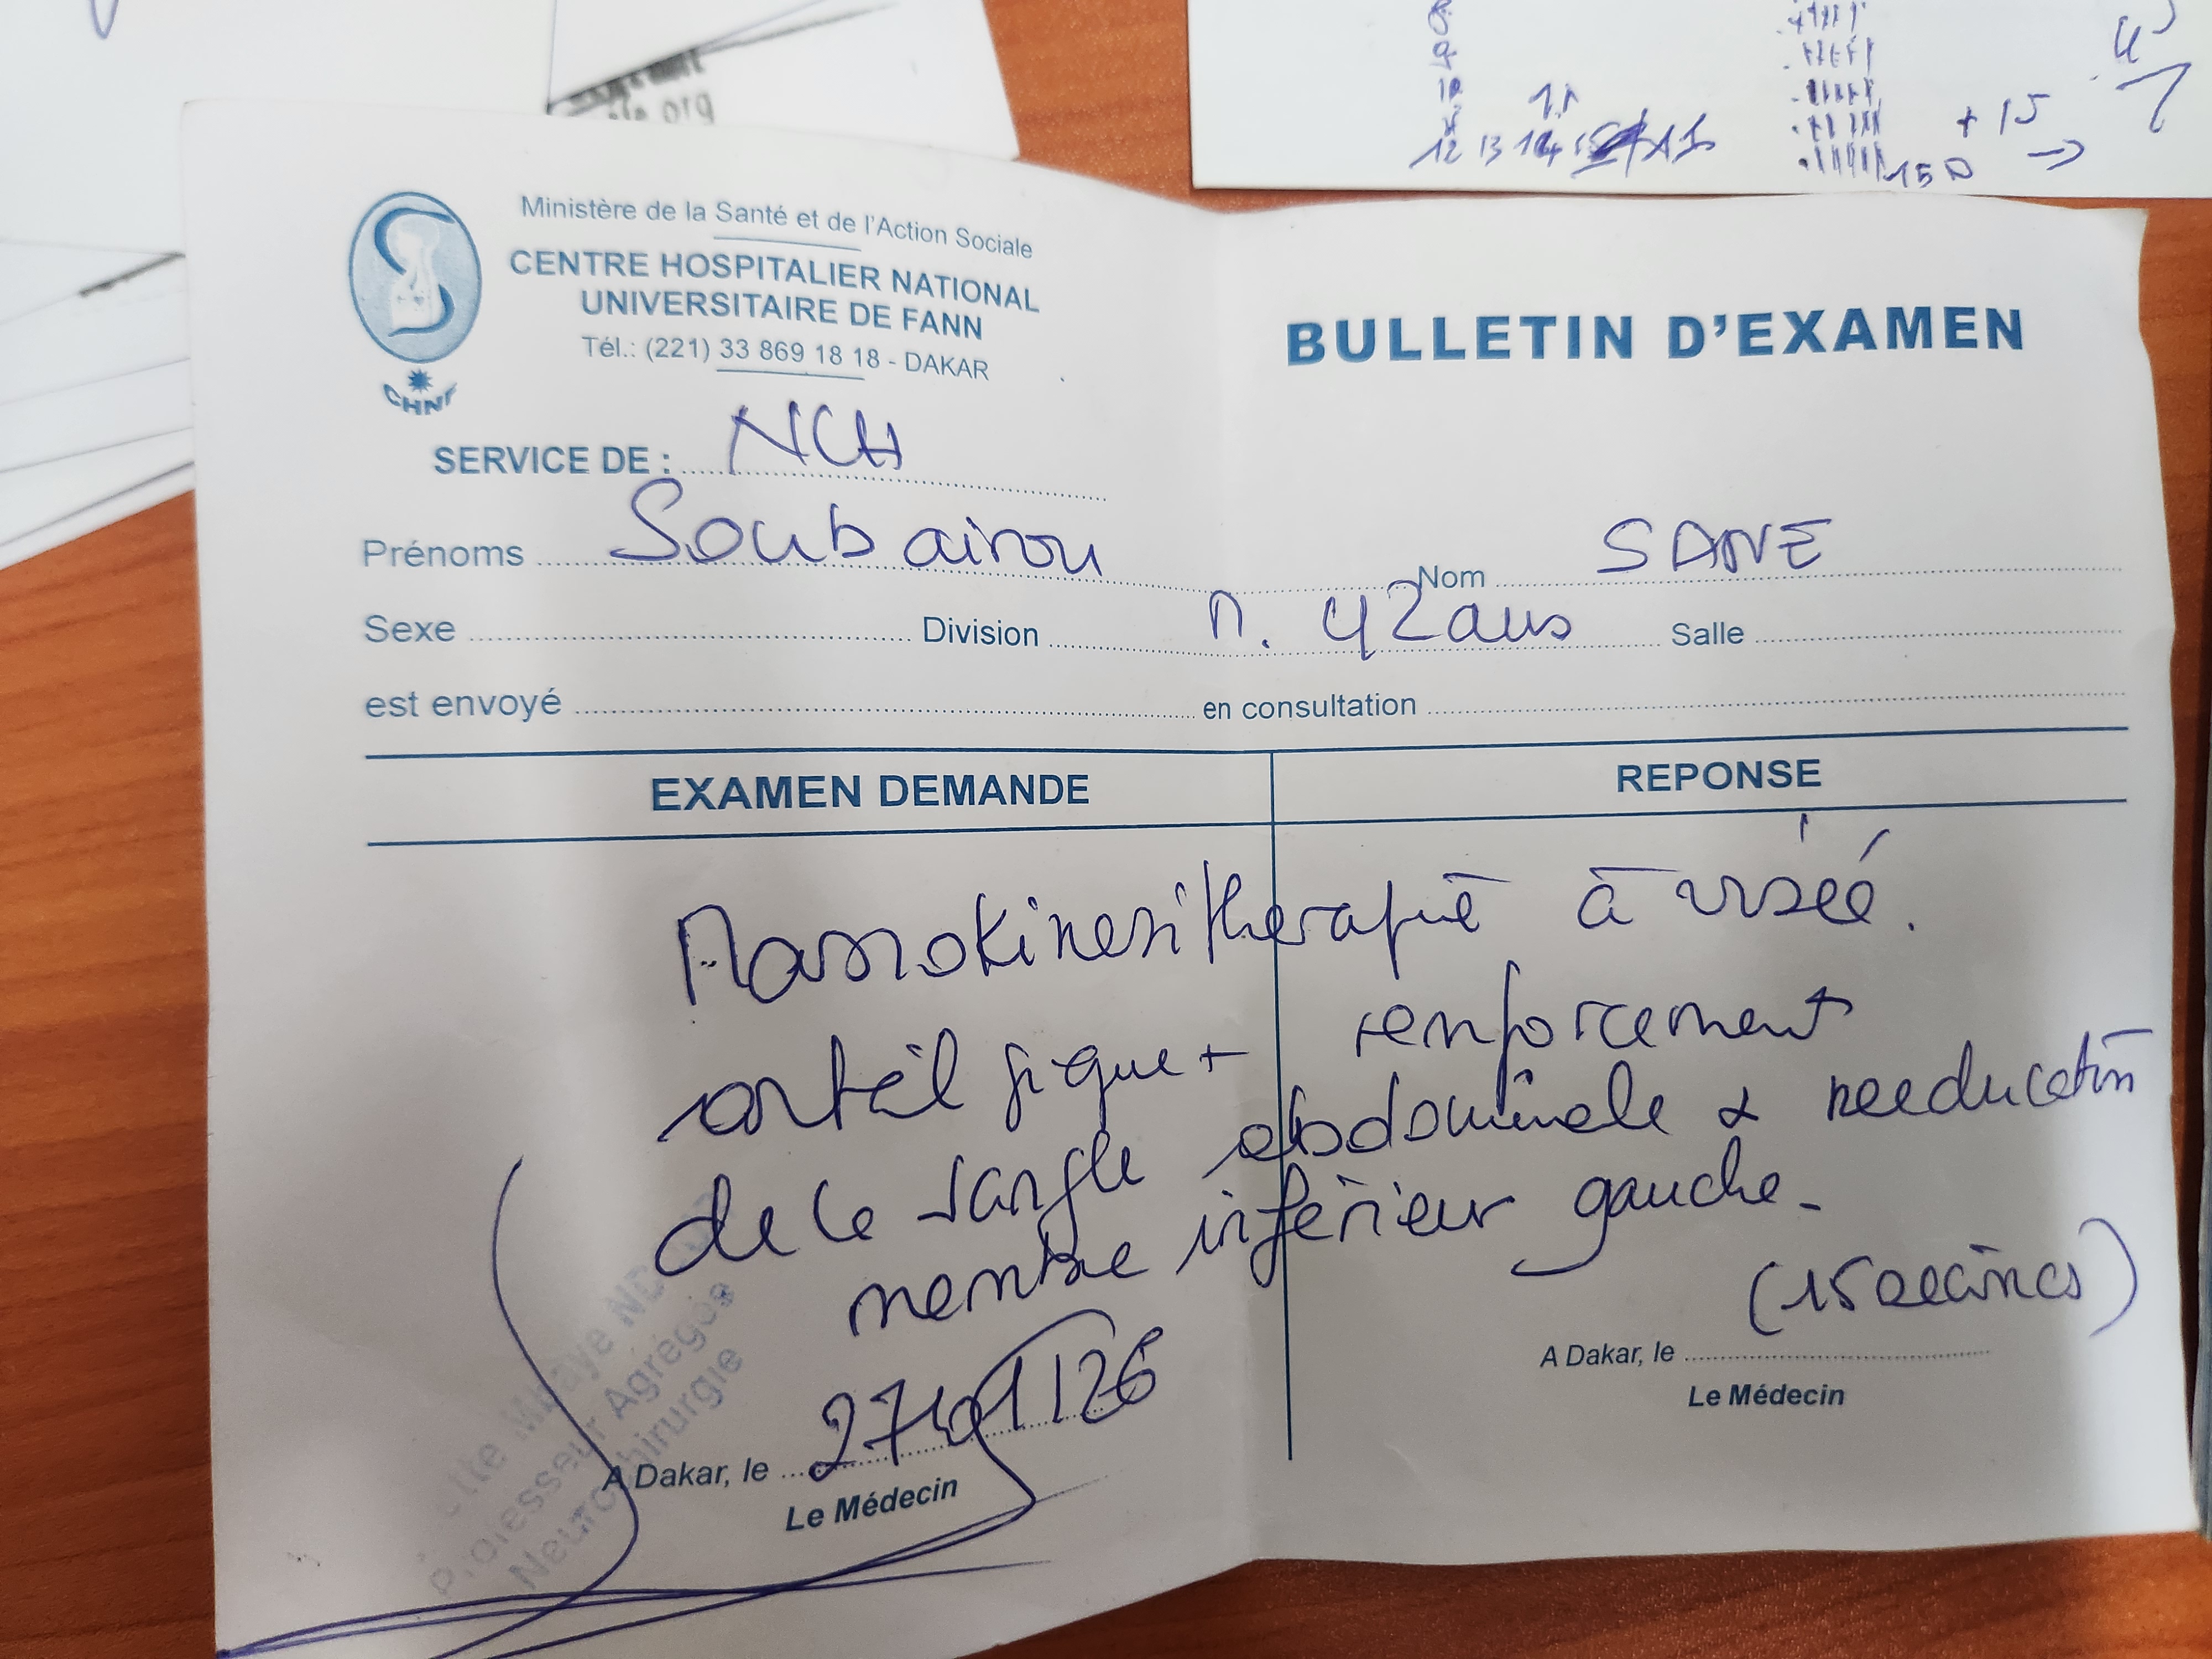 org
8
9
10
11
12 13 14
+ 15
150 →
Ministère de la Santé et de l'Action Sociale
CENTRE HOSPITALIER NATIONAL
UNIVERSITAIRE DE FANN
Tél.: (221) 33 869 18 18 - DAKAR
CHNF
BULLETIN D'EXAMEN
SERVICE DE : NCH
Prénoms Soubairou Nom SANE
Sexe Division M. 42 ans Salle
est envoyé en consultation
EXAMEN DEMANDE REPONSE
Massokinesitherapie à visée
antalgique + renforcement
de la sangle abdominale & reeducation
membre inférieur gauche.
(15 seances)
Mbaye
Professeur Agrégée
Neurochirurgie
A Dakar, le 27/01/26
Le Médecin
A Dakar, le
Le Médecin